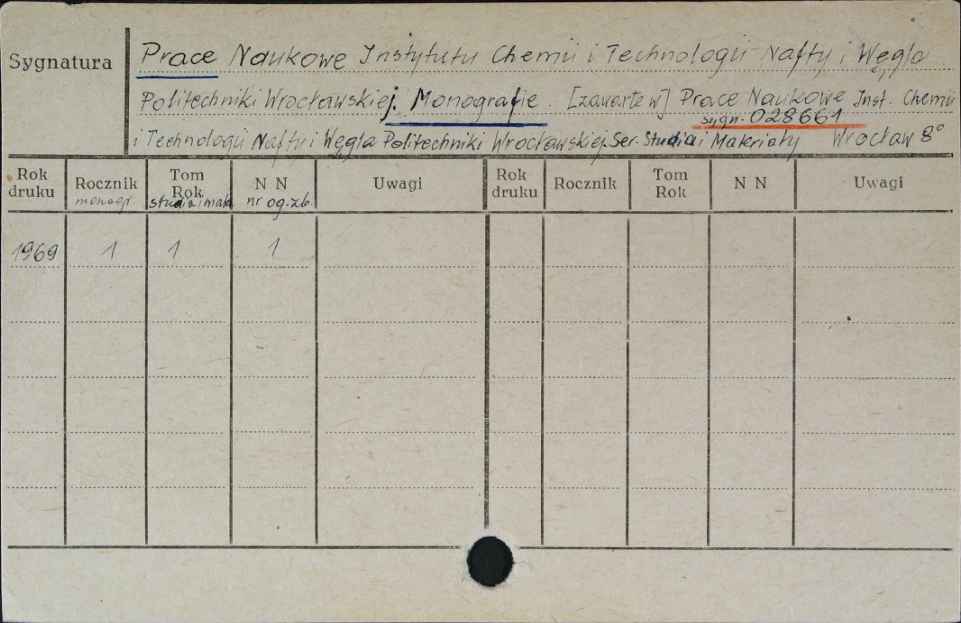 Sygnatura
Prace Naukowe Instytutu Chemii i Technologii Nafty i Węgla
Politechniki Wrocławskiej. Monografie. [zawarte w] Prace Naukowe Inst. Chemii
sygn. 028661
i Technologii Nafty i Węgla Politechniki Wrocławskiej. Ser. Studia i Materiały Wrocław 8°
Rok druku Rocznik monogr. Tom Rok studia i mat. N N nr og. zb. Uwagi Rok druku Rocznik Tom Rok N N Uwagi
1969 1 1 1